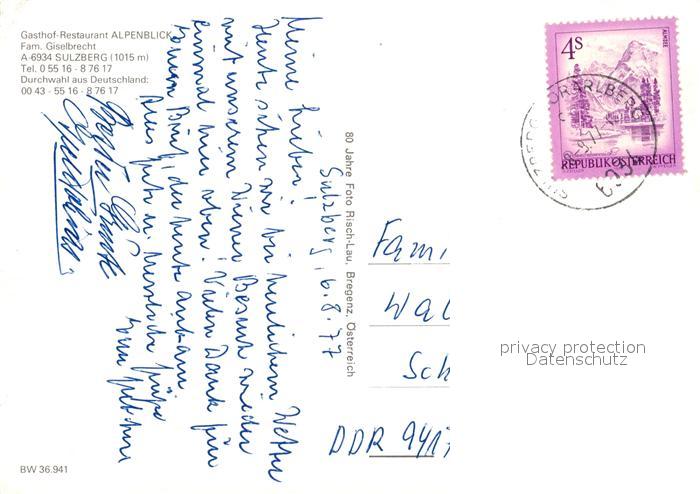 Gasthof-Restaurant ALPENBLICK
Fam. Giselbrecht
A-6934 SULZBERG (1015 m)
Tel. 0 55 16 - 8 76 17
Durchwahl aus Deutschland:
00 43 - 55 16 - 8 76 17
Sulzberg, 6.8.77
Meine Lieben!
Heute sitzen wir bei herrlichem Wetter
mit unserem Wiener Besuch wieder
einmal hier oben. Vielen Dank für
Brief, der heute ankam.
Alles Gute u. herzliche Grüße
80 Jahre Foto Risch-Lau, Bregenz, Österreich
4S
ALMSEE
REPUBLIK ÖSTERREICH
VORARLBERG
6934
SULZBERG
Fami
Wal
Sch
DDR 9417
privacy protection
Datenschutz
BW 36.941